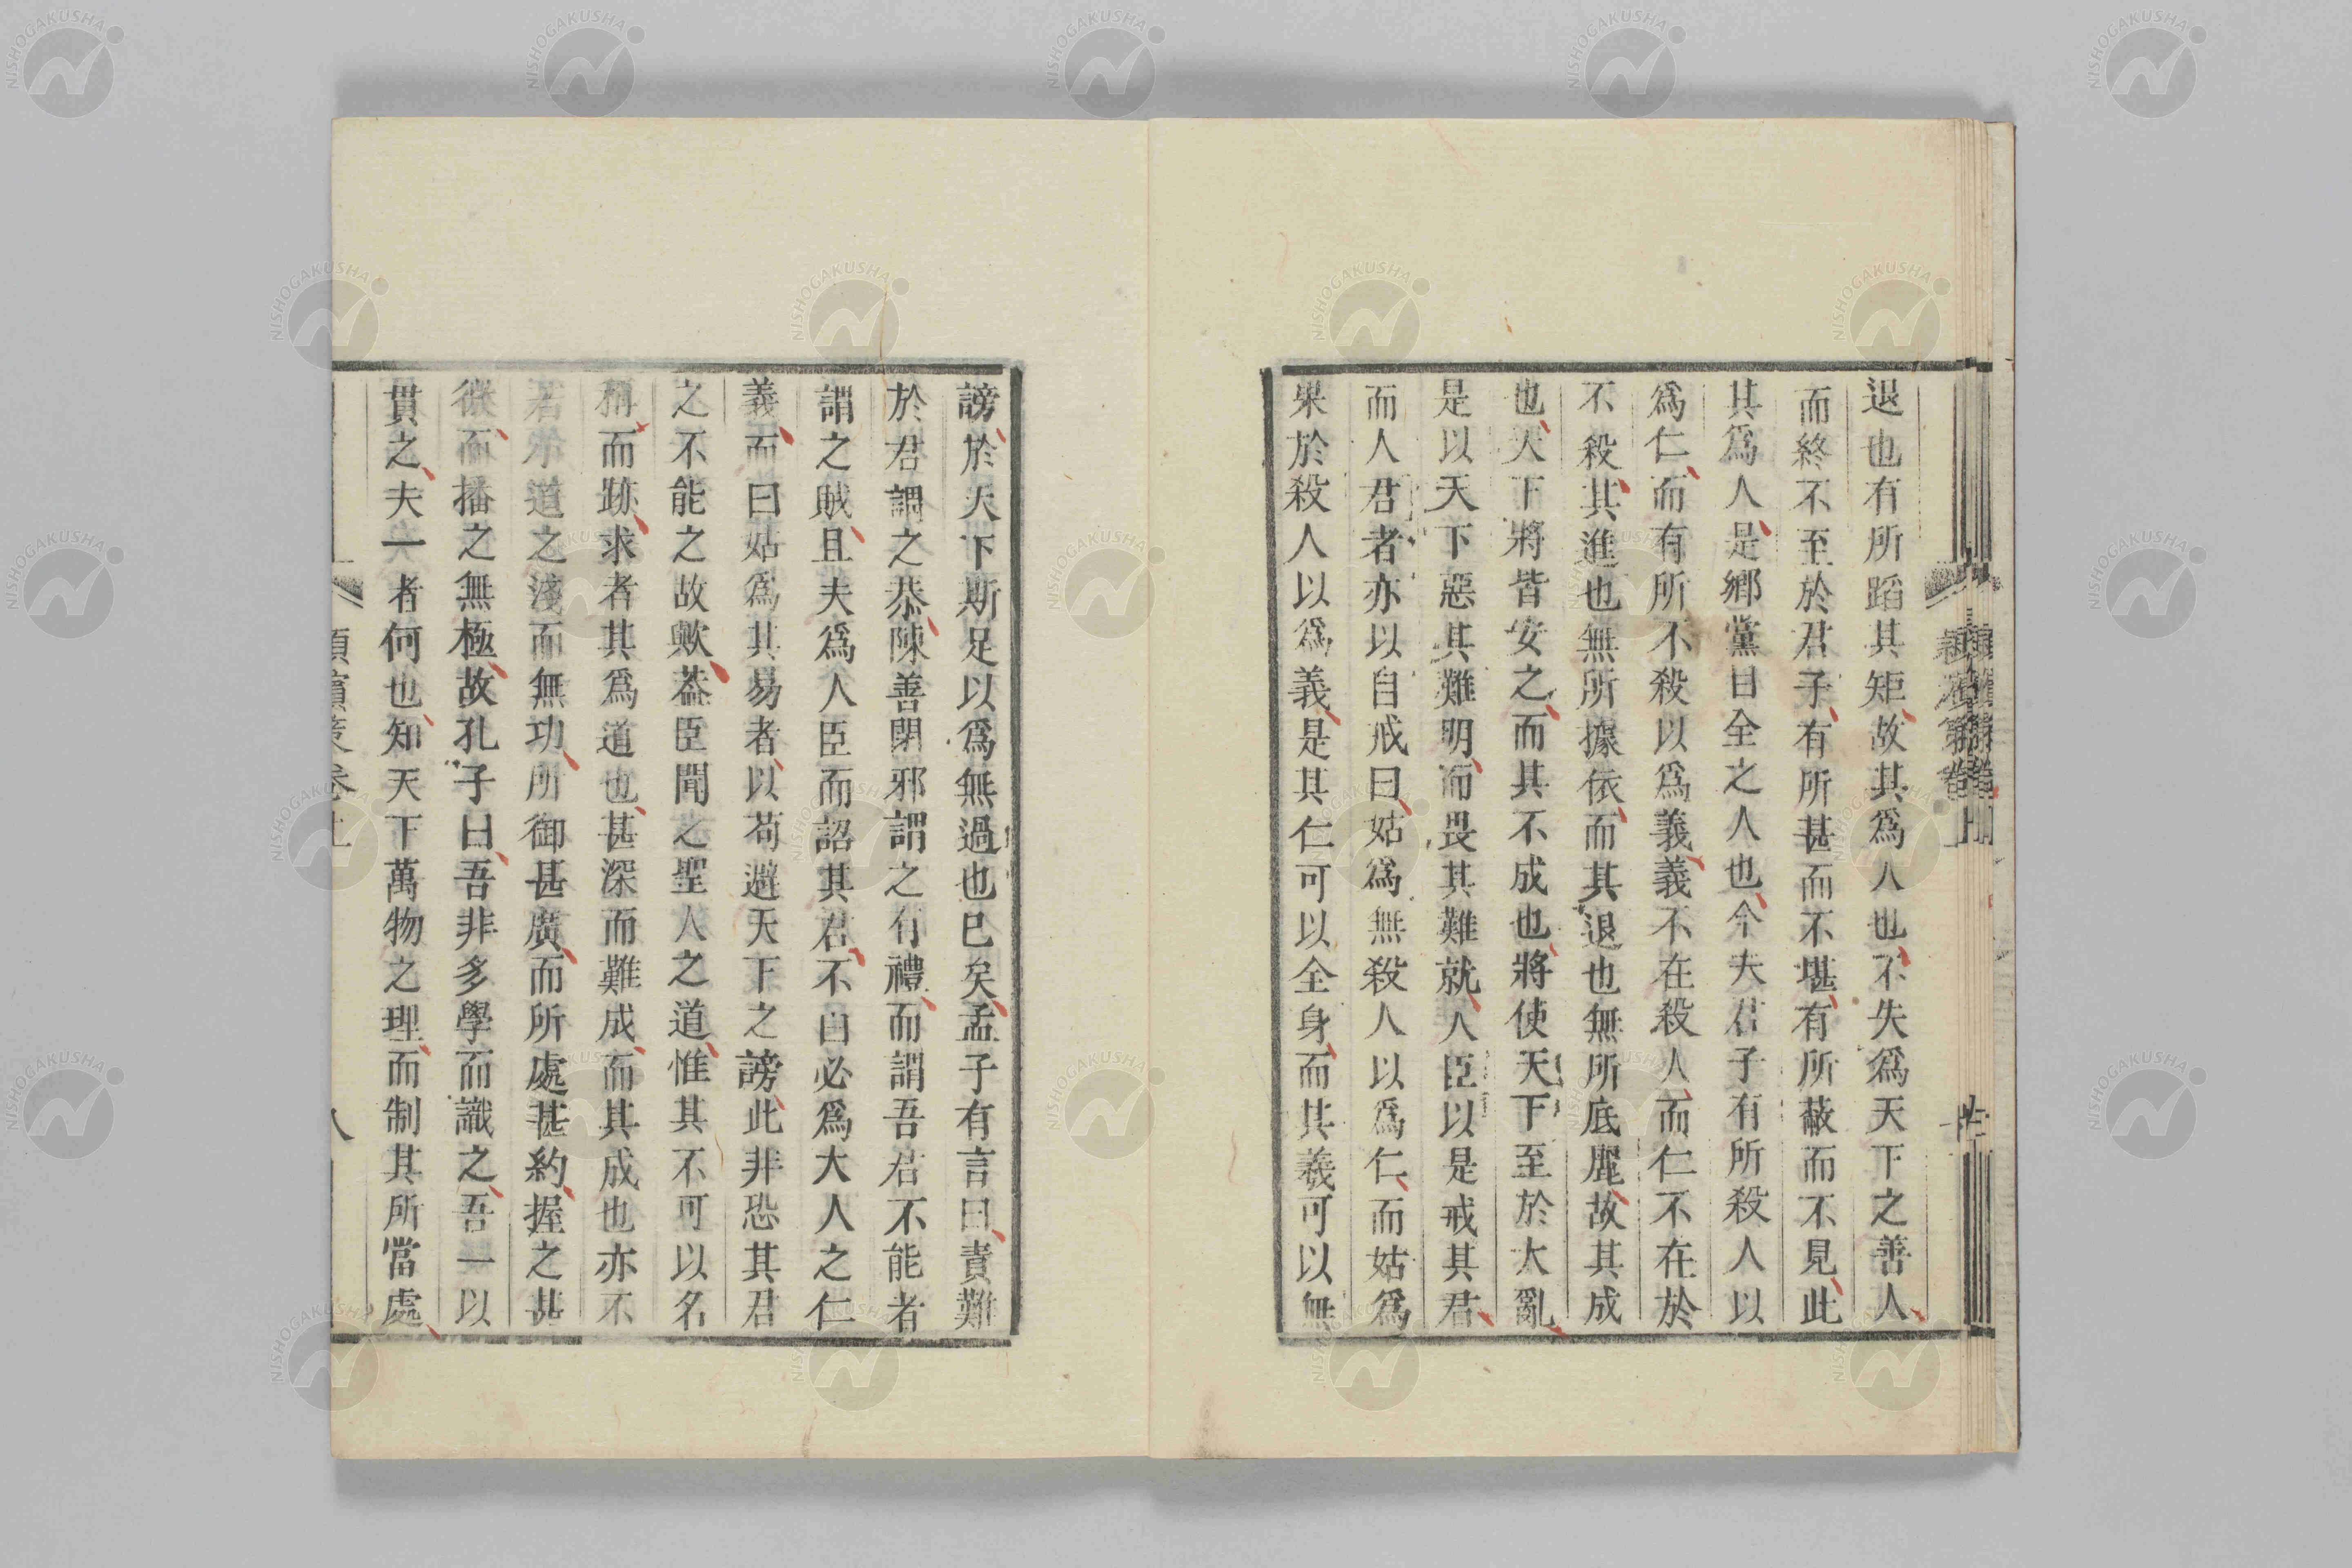 退也有所蹈其矩故其爲人也不失爲天下之善人
而終不至於君子有所甚而不堪有所蔽而不見此
其爲人是鄉黨自全之人也今夫君子有所殺人以
爲仁而有所不殺以爲義義不在殺人而仁不在於
不殺其進也無所據依而其退也無所底麗故其成
也天下將皆安之而其不成也將使天下至於大亂
是以天下惡其難明而畏其難就人臣以是戒其君
而人君者亦以自戒曰姑爲無殺人以爲仁而姑爲
果於殺人以爲義是其仁可以全身而其義可以無
謗於天下斯足以爲無過也已矣孟子有言曰責難
於君謂之恭陳善閉邪謂之有禮而謂吾君不能者
謂之賊且夫爲人臣而詔其君不曰必爲大人之仁
義而曰姑爲其易者以苟避天下之謗此非恐其君
之不能之故歟葢臣聞之聖人之道惟其不可以名
稱而跡求者其爲道也甚深而難成而其成也亦不
若小道之淺而無功所御甚廣而所處甚約握之甚
微而播之無極故孔子曰吾非多學而識之吾一以
貫之夫一者何也知天下萬物之理而制其所當處
潁濱策卷上
八
NISHOGAKUSHA